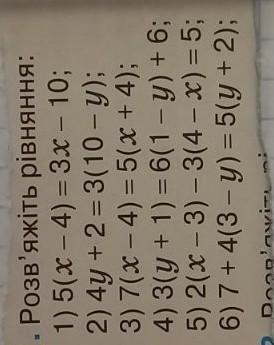 Розв'яжіть рівняння:
1) 5(x – 4) = 3x – 10;
2) 4y + 2 = 3(10 – y);
3) 7(x – 4) = 5(x + 4);
4) 3(y + 1) = 6(1 – y) + 6;
5) 2(x – 3) – 3(4 – x) = 5;
6) 7 + 4(3 – y) = 5(y + 2);